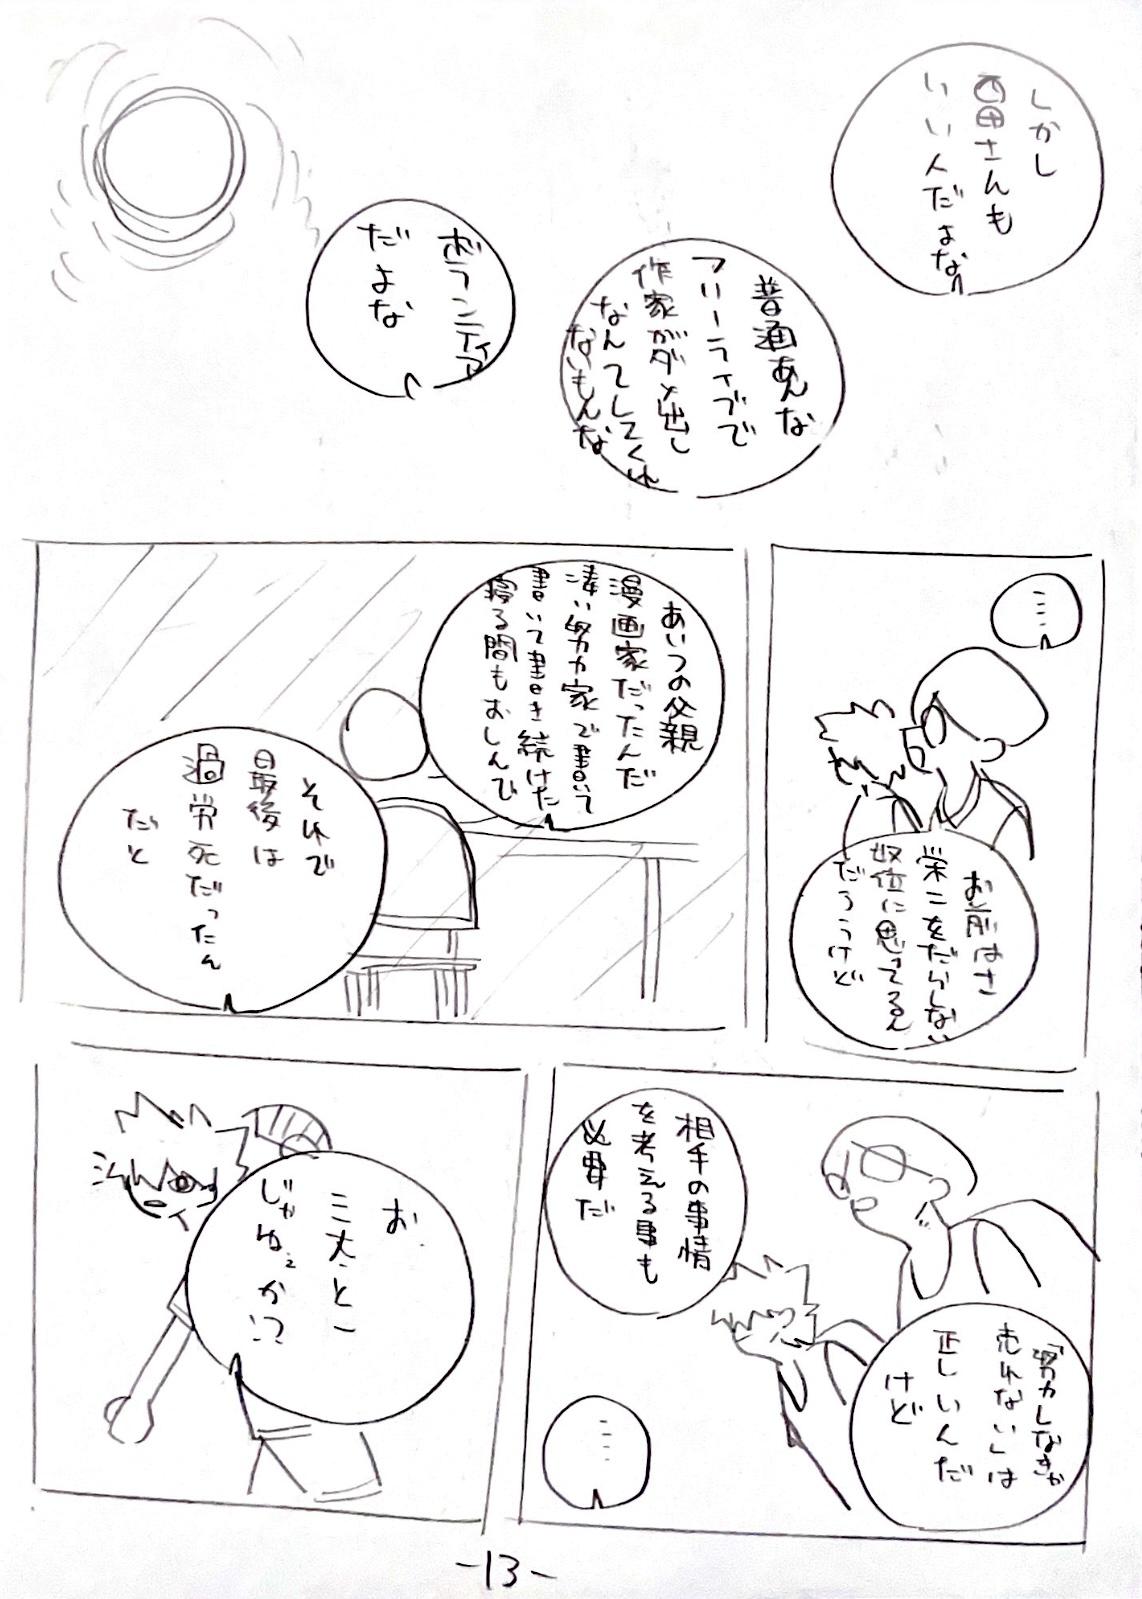 しかし
西田さんも
いい人だよな
普通あんな
フリーライブで
作家がダメ出し
なんてしてくれ
ないもんな
ボランティア
だよな
…
お前はさ
栄二をだらしない
奴位に思ってるん
だろうけど
あいつの父親
漫画家だったんだ
凄い努力家で書いて
書いて書き続けた
寝る間もおしんで
それで
最後は
過労死だったん
だと
「努力しなきゃ
売れない」は
正しいんだ
けど
相手の事情
を考える事も
必要だ
…
お
じゃねぇか!?
-13-